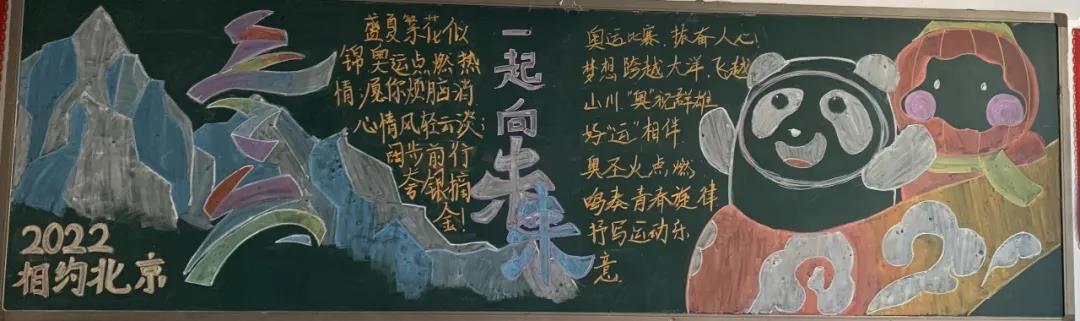 2022
相约北京
盛夏繁花似
锦奥运点燃热
情.愿你烦脑消
心情风轻云淡;
阔步前行
夺银摘
金!
一起向未来
奥运比赛,振奋人心!
梦想跨越大洋,飞越
山川."奥"祝群雄
好"运"相伴
奥圣火点燃
鸣奏青春旋律
抒写运动乐
意